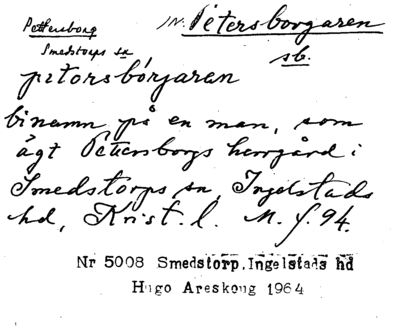 Pettersborg IN. Petersborgaren
Smedstorps sn sb.
petorsbórjaren
binamn på en man, som
ägt Petersborgs herrgård i
Smedstorps sn, Ingelstads
hd, Krist. l. M. f. 94.
Nr 5008 Smedstorp, Ingelstads hd
Hugo Areskoug 1964